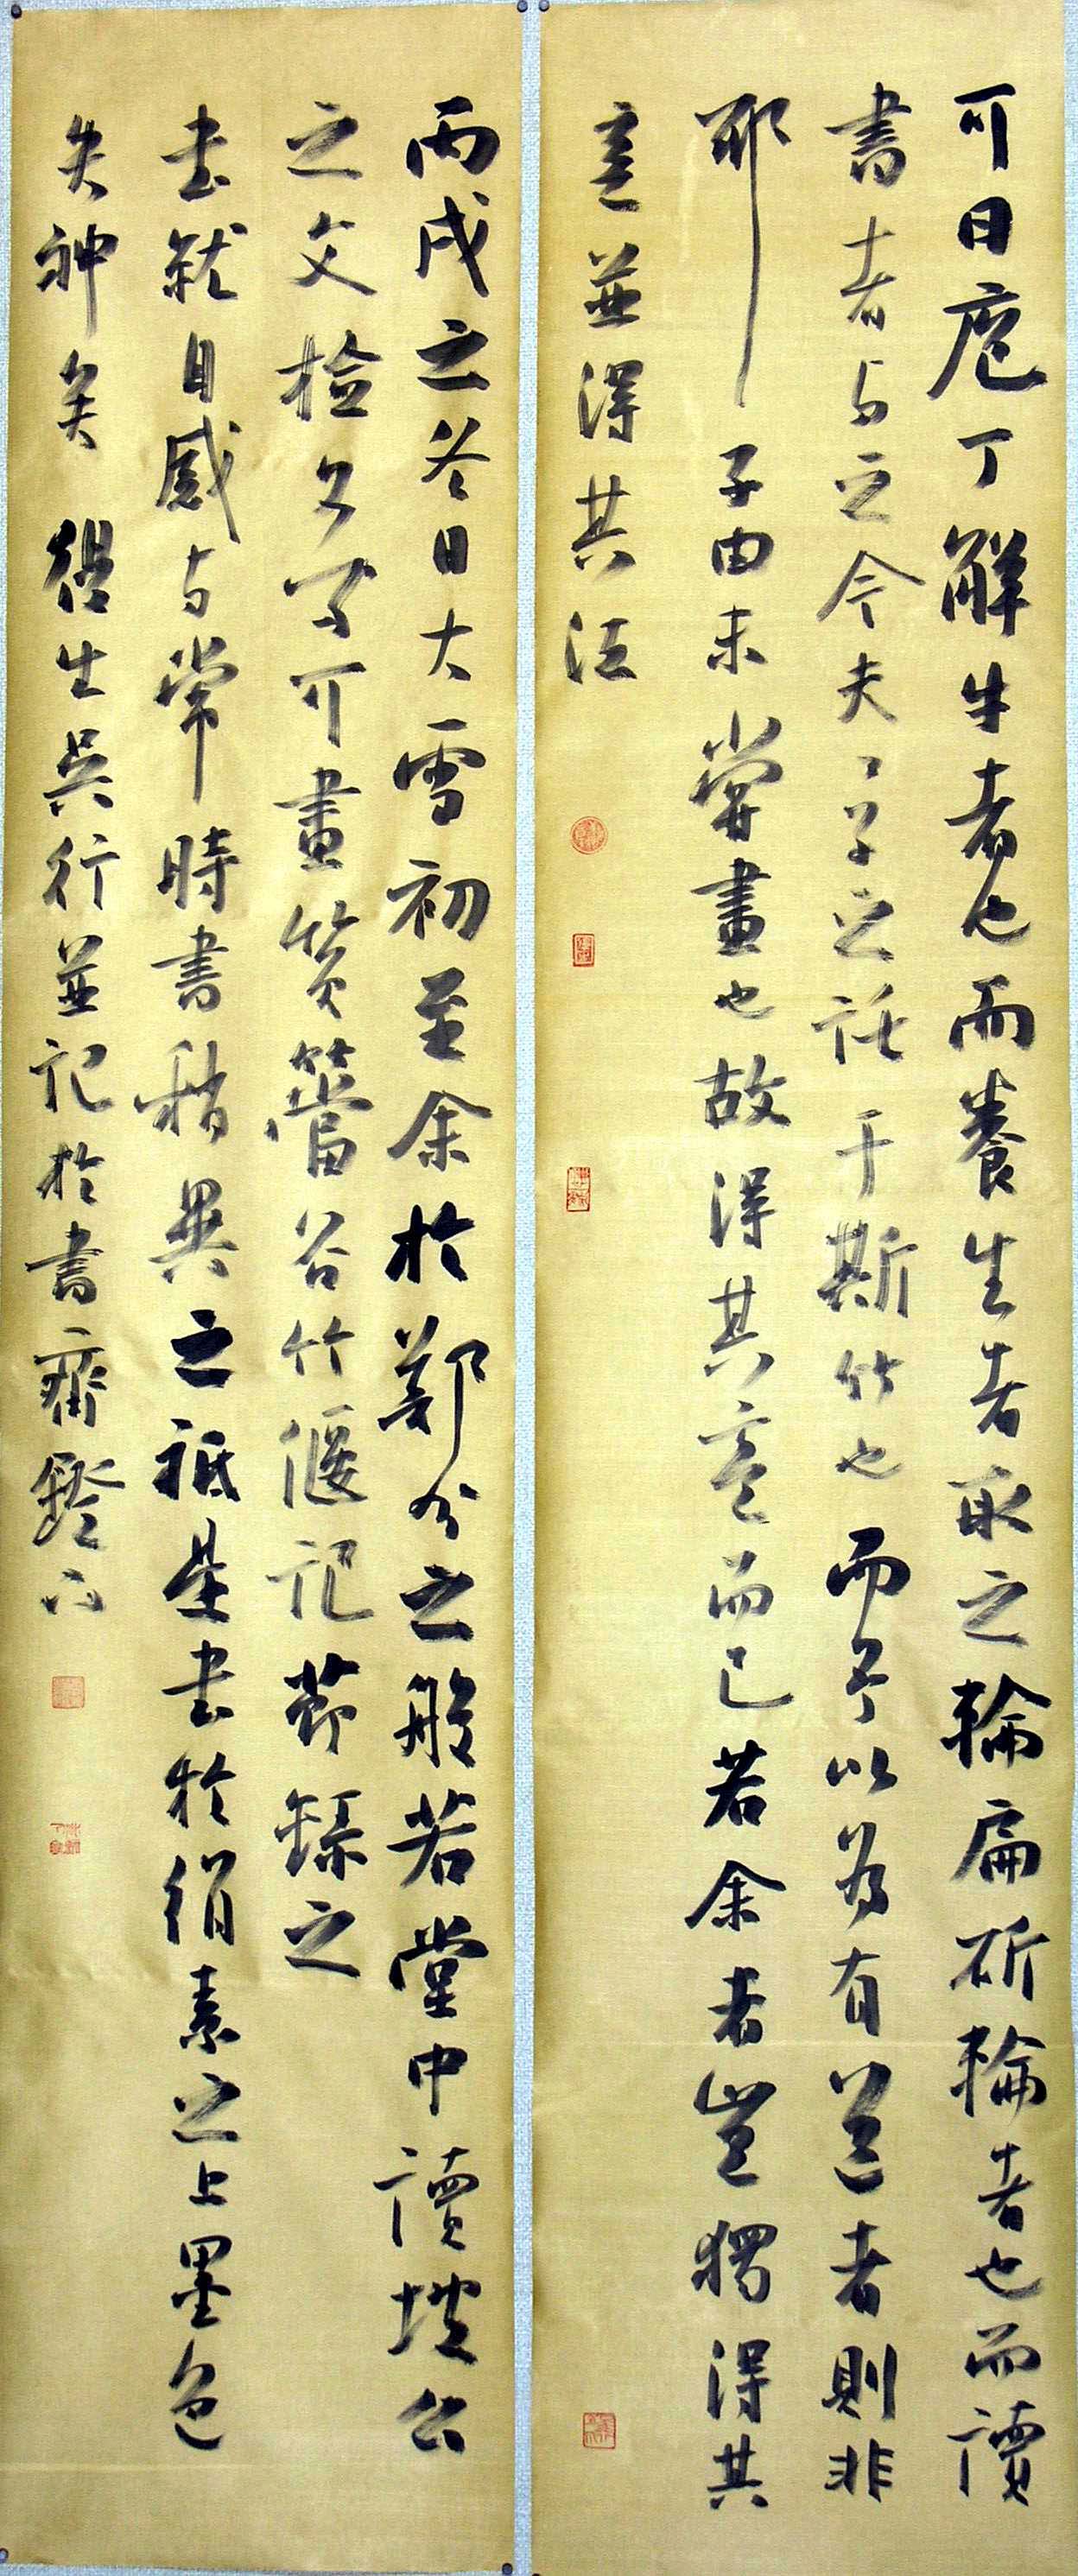 可曰庖丁解牛者也而養生者取之輪扁斫輪者也而讀
書者与之今夫〻子之託于斯竹也而予以為有道者則非
耶子由未嘗畫也故得其意而已若余者豈獨得其
意並得其法
丙戌之冬日大雪初至余於鄭分之般若堂中讀坡公
之文檢文與可畫篔簹谷竹偃記節錄之
書就自感与常時書稍異之祇是書於絹素之上墨色
失神矣 生吳行並記於書齋鐙下